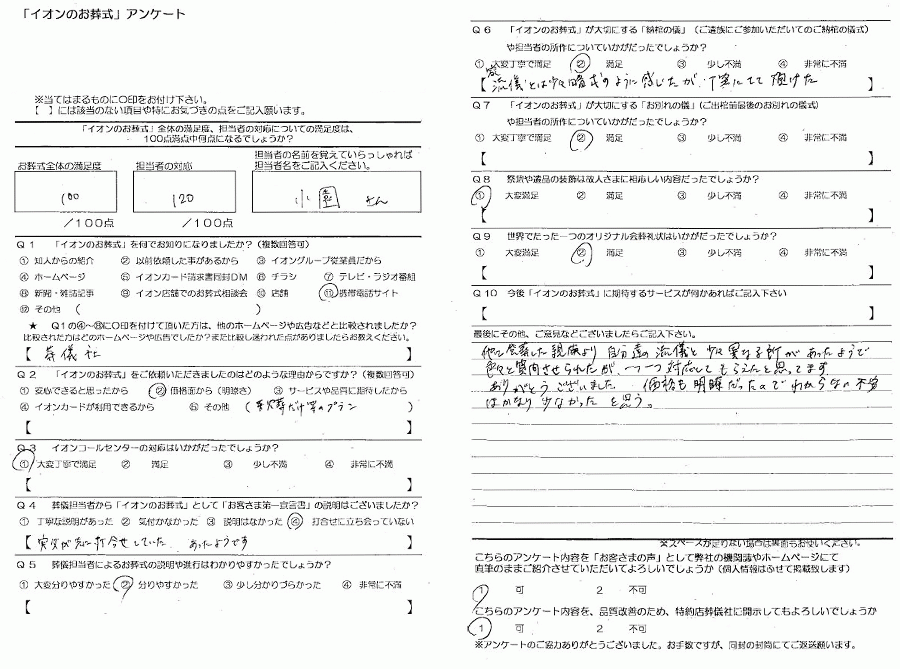 「イオンのお葬式」アンケート
※当てはまるものに○印をお付け下さい。
【　】には該当のない項目や特にお気づきの点をご記入願います。
「イオンのお葬式」全体の満足度、担当者の対応についての満足度は、
100点満点中何点になるでしょうか？
お葬式全体の満足度
担当者の対応
担当者の名前を覚えていらっしゃれば
担当者名をご記入ください。
100
120
小園 さん
／100点
／100点
Q1　「イオンのお葬式」を何でお知りになりましたか？（複数回答可）
① 知人からの紹介　② 以前依頼した事があるから　③ イオングループ従業員だから
④ ホームページ　⑤ イオンカード請求書同封DM　⑥ チラシ　⑦ テレビ・ラジオ番組
⑧ 新聞・雑誌記事　⑨ イオン店舗でのお葬式相談会　⑩ 店舗　⑪ 携帯電話サイト
⑫ その他（　）
★　Q1の④～⑧に○印を付けて頂いた方は、他のホームページや広告などと比較されましたか？
比較された方はどのホームページや広告でしたか？また比較し迷われた点がありましたらお教えください。
【 葬儀社 】
Q2　「イオンのお葬式」をご依頼いただきましたのはどのような理由からですか？（複数回答可）
① 安心できると思ったから　② 価格面から（明瞭さ）　③ サービスや品質に期待したから
④ イオンカードが利用できるから　⑤ その他（火葬だけ等のプラン）
【　】
Q3　イオンコールセンターの対応はいかがだったでしょうか？
① 大変丁寧で満足　② 満足　③ 少し不満　④ 非常に不満
【　】
Q4　葬儀担当者から「イオンのお葬式」として「お客さま第一宣言書」の説明はございましたか？
① 丁寧な説明があった　② 気付かなかった　③ 説明はなかった　④ 打合せに立ち会っていない
【 打合せしていた あったようです 】
Q5　葬儀担当者によるお葬式の説明や進行はわかりやすかったでしょうか？
① 大変分りやすかった　② 分りやすかった　③ 少し分かりづらかった　④ 非常に不満
【　】
Q6　「イオンのお葬式」が大切にする「納棺の儀」（ご遺族にご参加いただいてのご納棺の儀式）
や担当者の所作についていかがだったでしょうか？
① 大変丁寧で満足　② 満足　③ 少し不満　④ 非常に不満
【 流儀とは少々略式のように感じたが、丁寧にして頂けた 】
Q7　「イオンのお葬式」が大切にする「お別れの儀」（ご出棺前最後のお別れの儀式）
や担当者の所作についていかがだったでしょうか？
① 大変丁寧で満足　② 満足　③ 少し不満　④ 非常に不満
【　】
Q8　祭壇や遺品の装飾は故人さまに相応しい内容だったでしょうか？
① 大変満足　② 満足　③ 少し不満　④ 非常に不満
【　】
Q9　世界でたった一つのオリジナル会葬礼状はいかがだったでしょうか？
① 大変満足　② 満足　③ 少し不満　④ 非常に不満
【　】
Q10　今後「イオンのお葬式」に期待するサービスが何かあればご記入下さい
【　】
最後にその他、ご意見などございましたらご記入下さい。
他で葬した親族より 自分達の流儀と少々異なる所があったようで
色々と質問させられたが、一つ一つ対応してもらえたと思ってます
ありがとうございました。価格も明瞭だったのでわからない不安
はかなり少なかったと思う。
※スペースが足りない場合は裏面もお使いください。
こちらのアンケート内容を「お客さまの声」として弊社の機関誌やホームページにて
直筆のままご紹介させていただいてよろしいでしょうか（個人情報はふせて掲載致します）
1　可　2　不可
こちらのアンケート内容を、品質改善のため、特約店葬儀社に開示してもよろしいでしょうか
1　可　2　不可
※アンケートのご協力ありがとうございました。お手数ですが、同封の封筒にてご返送願います。